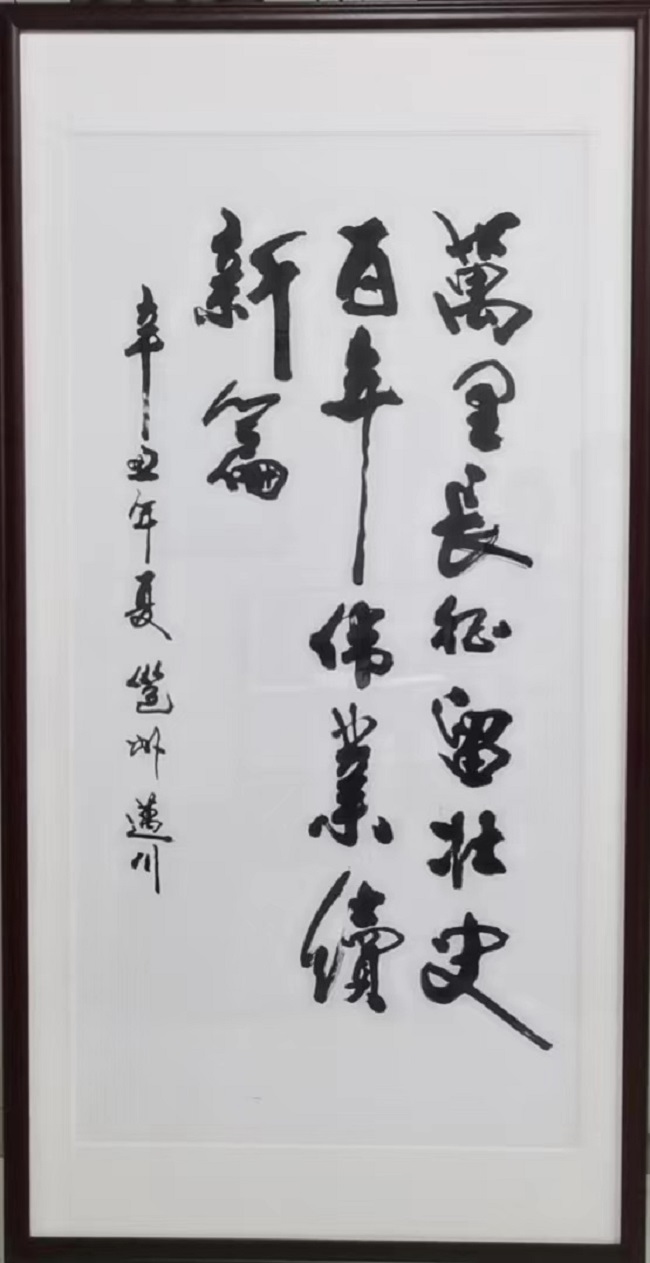 萬里長征留壯史
百年偉業續
新篇
辛丑年夏邕州邁川